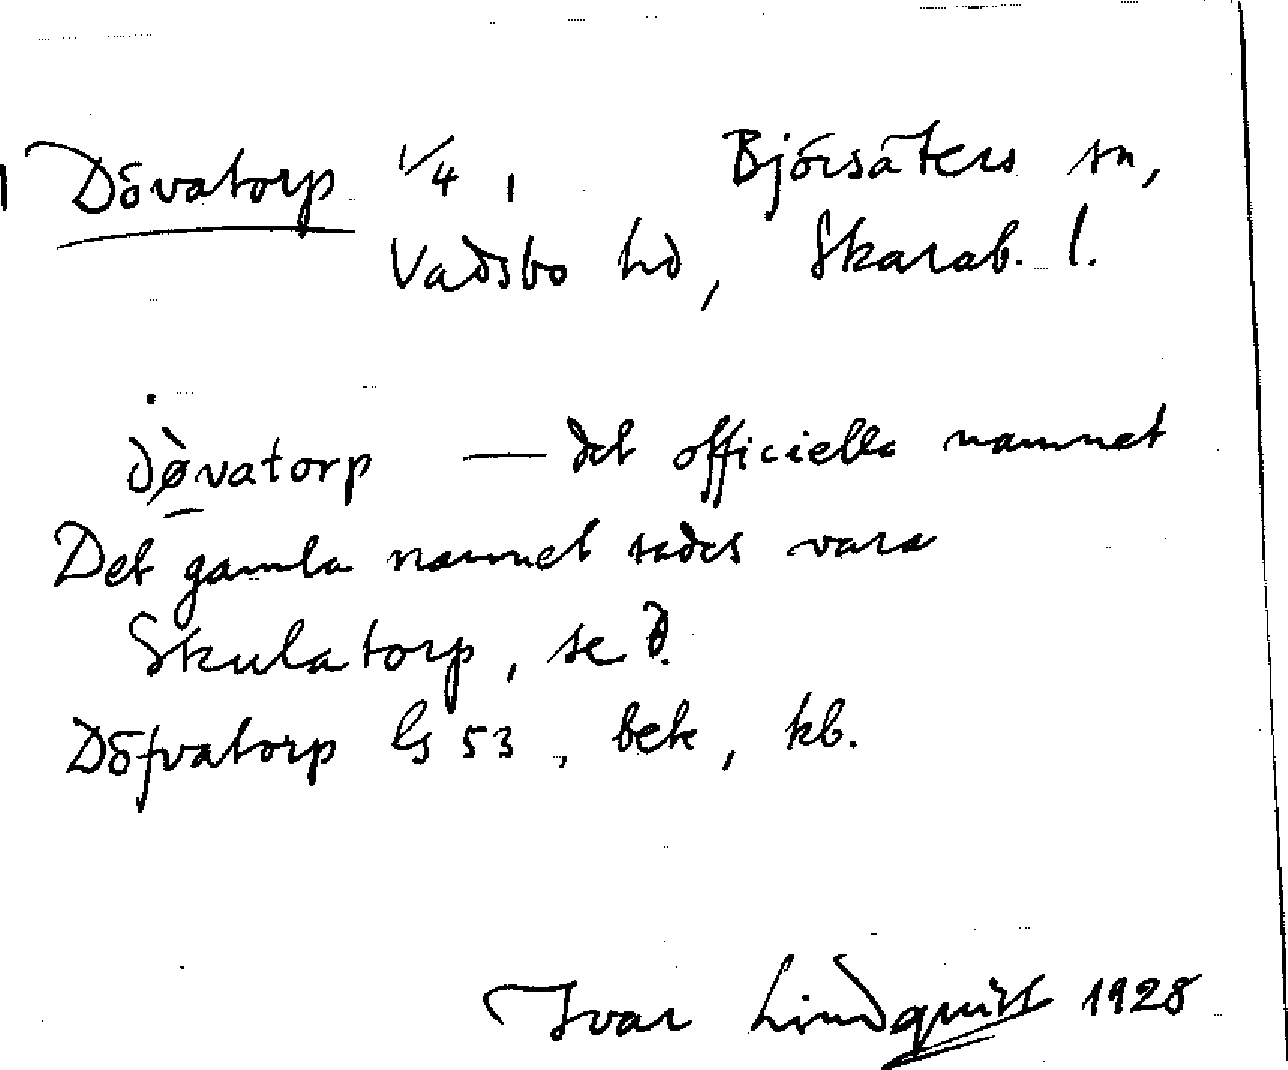 Dövatorp 1/4, Björsäters sn,
Vadsbo hd, Skarab. l.
dø̀vatorp — det officiella namnet
Det gamla namnet sades vara
Skulatorp, se d.
Döfvatorp GS 53, bek, kb.
Ivar Lindquist 1928